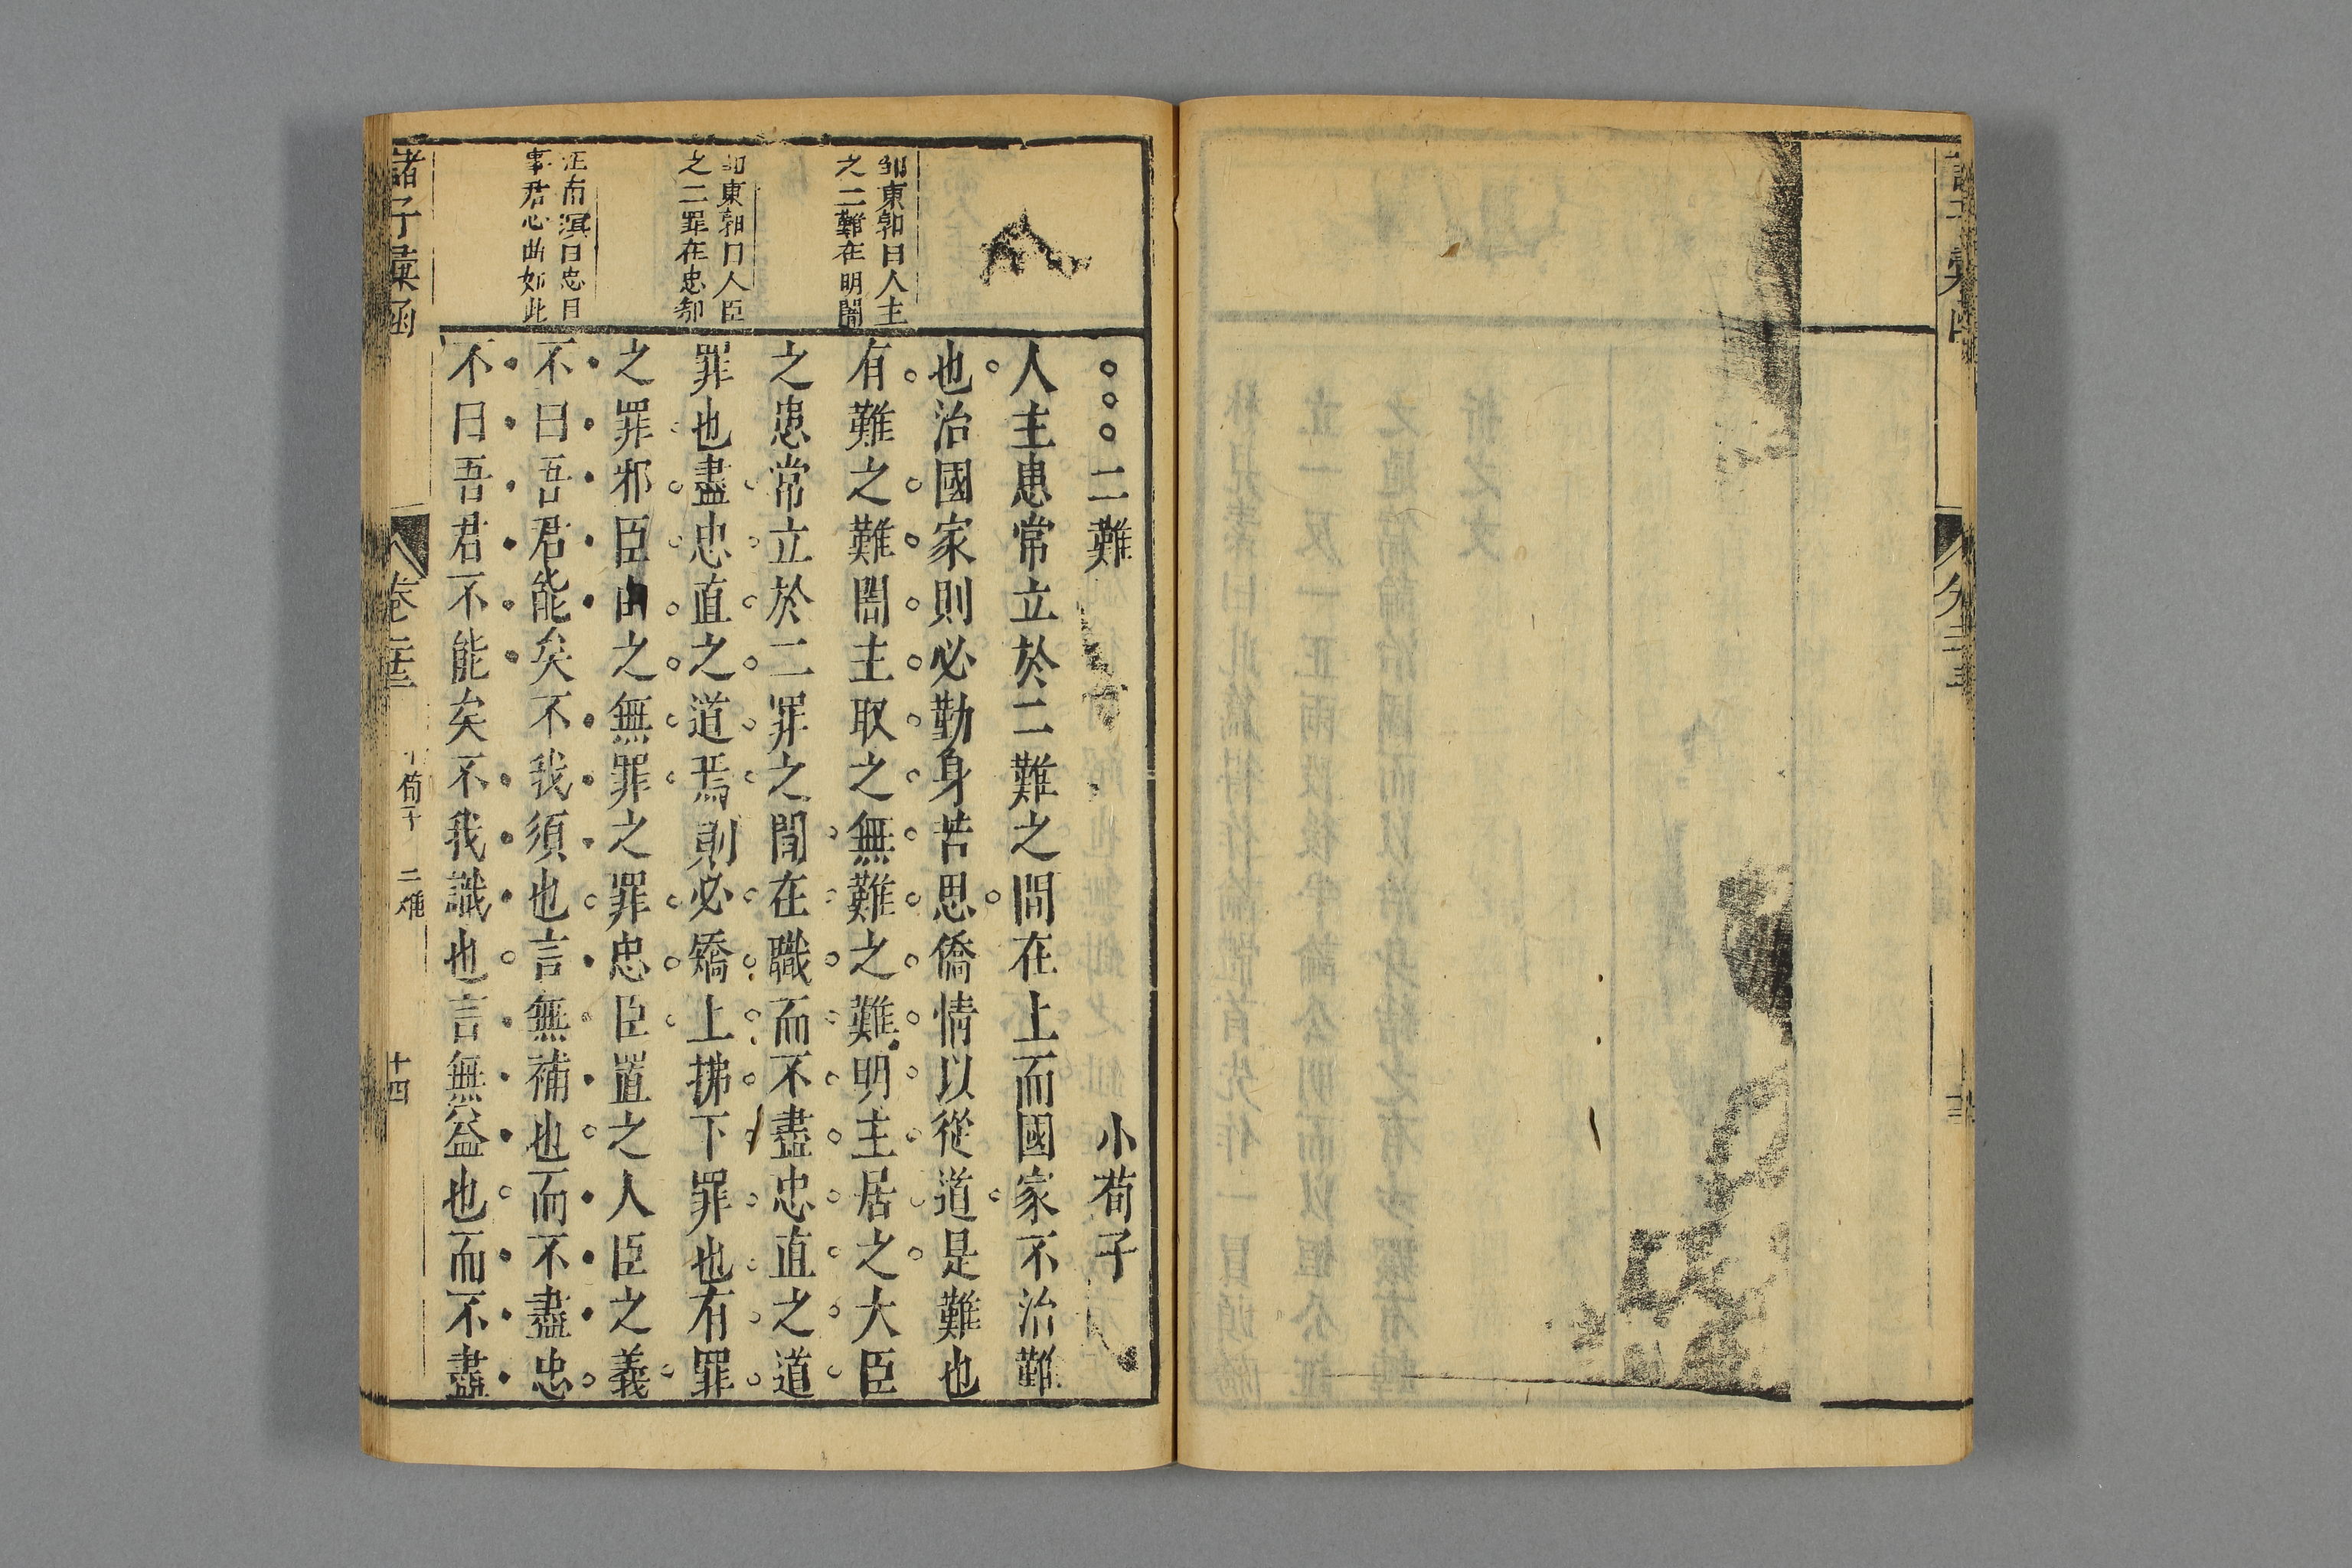 二難 小荀子
人主患常立於二難之間在上而國家不治難
也治國家則必勤身苦思僑情以從道是難也
有難之難闇主取之無難之難明主居之大臣
之患常立於二罪之間在職而不盡忠直之道
罪也盡忠直之道焉則必矯上拂下罪也有罪
之罪邪臣由之無罪之罪忠臣置之人臣之義
不曰吾君能矣不我須也言無補也而不盡忠
不曰吾君不能矣不我識也言無益也而不盡
鄒東郭曰人主
之二難在明闇
東郭曰人臣
之二罪在忠邪
汪南溟曰忠臣
事君心曲如此
諸子彙函
卷二十三
荀子
二難
十四